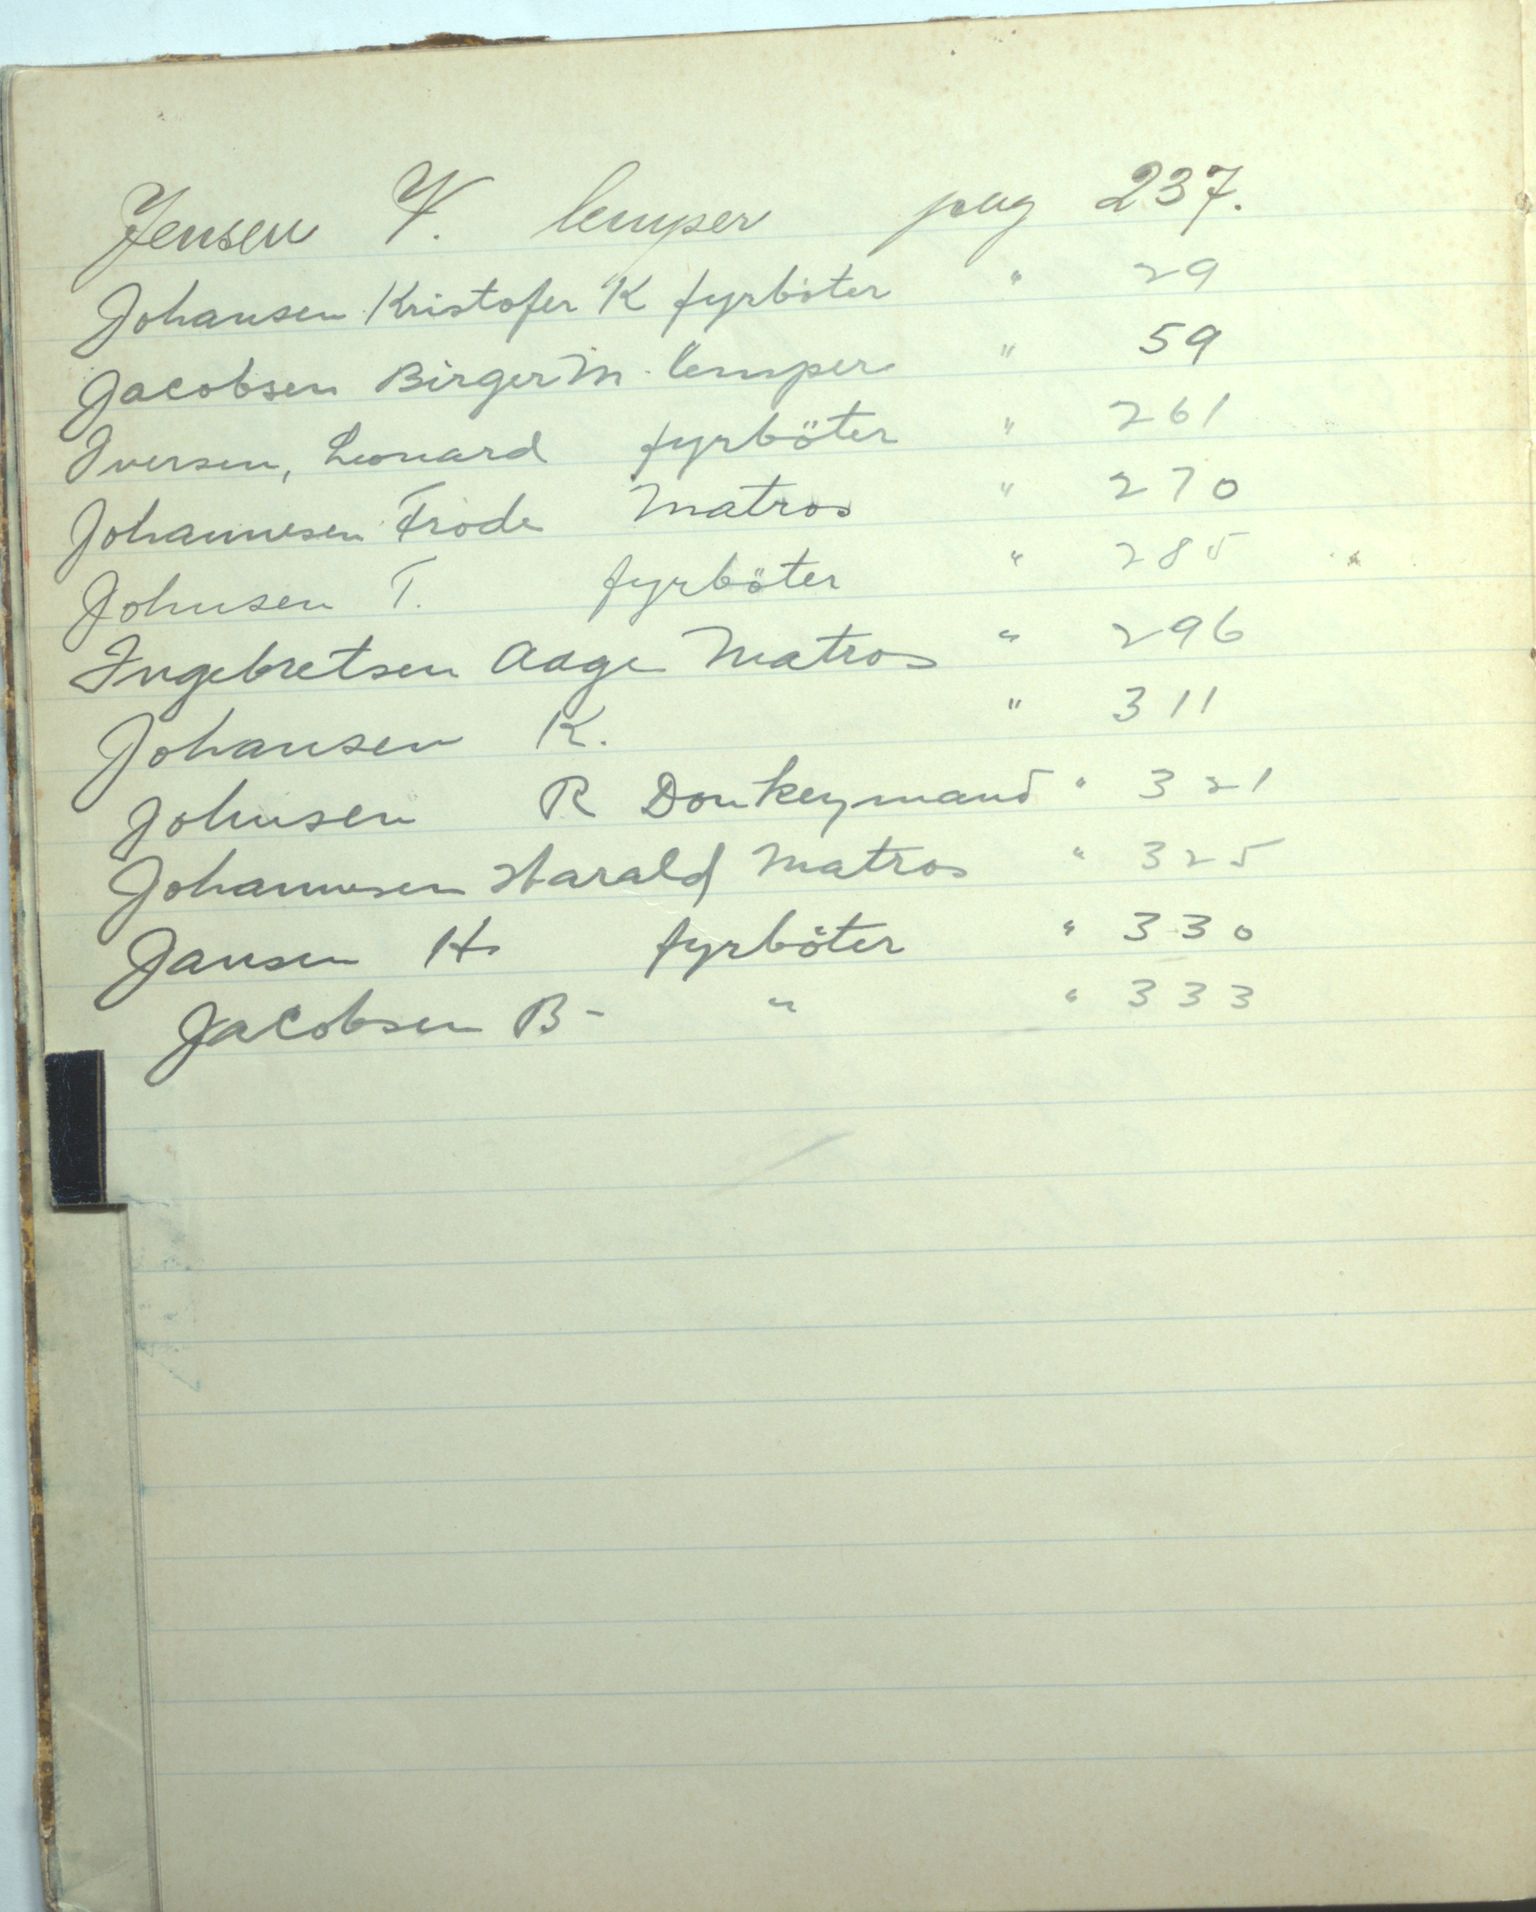 Jensen F. lemper pag 237.
Johansen Kristofer K fyrböter " 29
Jacobsen Birger M. lemper " 59
Iversen, Leonard fyrböter " 261
Johannesen Frode Matros " 270
Johnsen T. fyrböter " 285
Ingebretsen Aage Matros " 296
Johansen K. " 311
Johnsen R Donkeymand " 321
Johannesen Harald Matros " 325
Jansen H. fyrböter " 330
Jacobsen B - " " 333